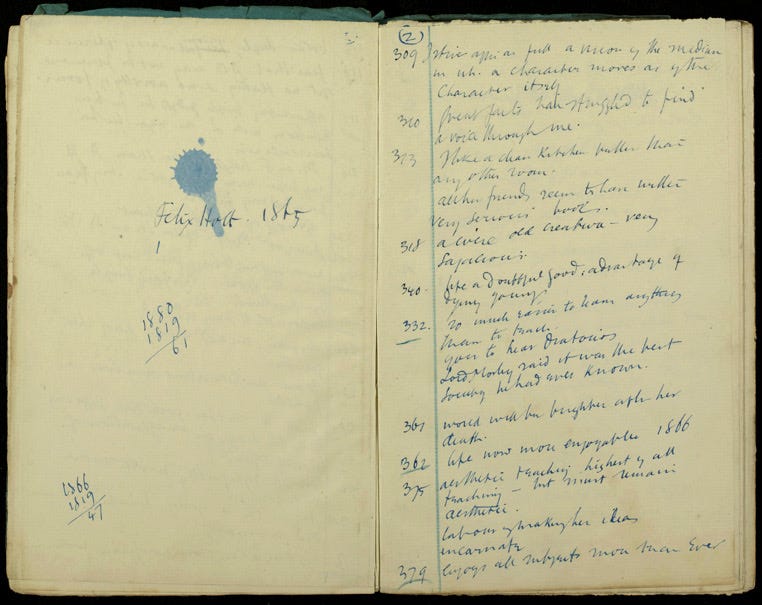 Felix Holt. 1865
1
1880
1819
61
1866
1819
47
(2)
309 I strive after as full a vision of the medium
in wh. a character moves as of the
character itself
310 great facts have struggled to find
a voice through me.
313 I like a clean kitchen better than
any other room.
all her friends seem to have written
very serious books.
318 a civil old creature - very
sagacious.
340. life a doubtful good: advantage of
dying young.
332. so much easier to learn anything
than to teach.
goes to hear Oratorios
Lord Morley said it was the best
Society he had ever known.
361 world will be brighter after her
death.
362 life now more enjoyable 1866
375 aesthetic teaching highest of all
teaching - but must remain
aesthetic.
labour of making her ideas
incarnate
379 enjoys all subjects more than ever